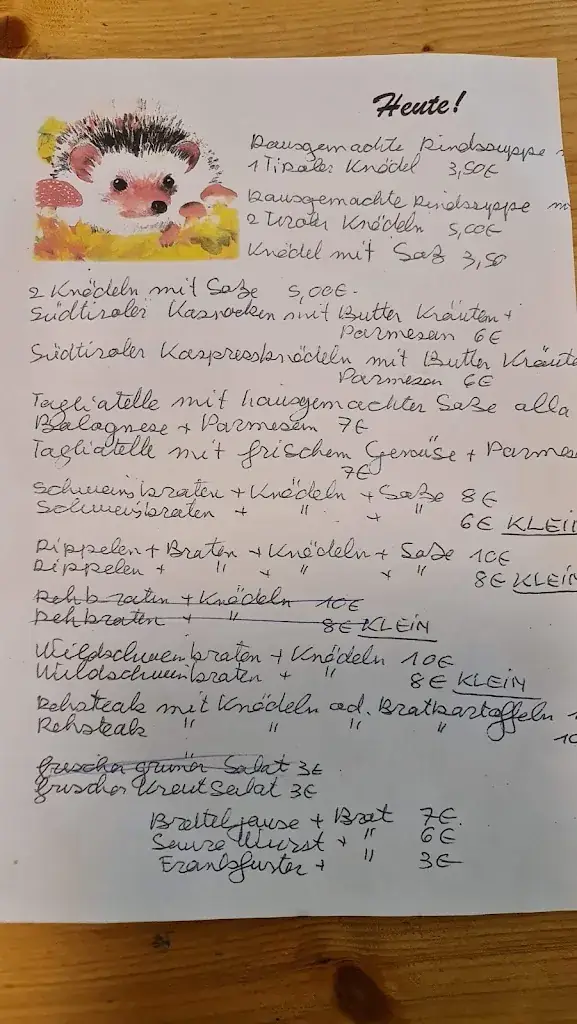 Heute!
Hausgemachte Rindssuppe
1 Tiroler Knödel 3,50€
Hausgemachte Rindssuppe
2 Tiroler Knödeln 5,00€
Knödel mit Saß 3,50
2 Knödeln mit Saße 5,00€.
Südtiroler Kasnocken mit Butter Kräuten +
Parmesan 6€
Südtiroler Kaspressknödeln mit Butter Kräute
Parmesan 6€
Tagliatelle mit hausgemachter Saße alla
Balagnese + Parmesan 7€
Tagliatelle mit frischem Gemüse + Parmes
7€
Schweinsbraten + Knödeln + Saße 8€
Schweinsbraten + " + " 6€ KLEIN
Rippelen + Braten + Knödeln + Saße 10€
Rippelen + " + " + " 8€ KLEIN
Rehbraten + Knödeln 10€
Rehbraten + " 8€ KLEIN
Wildschweinbraten + Knödeln 10€
Wildschweinbraten + " 8€ KLEIN
Rehsteak mit Knödeln od. Bratkartoffeln
Rehsteak " " " "
frischer grüner Salat 3€
frischer Kraut Salat 3€
Bretteljause + Brot 7€.
Saure Wurst + " 6€
Frankfurter + " 3€